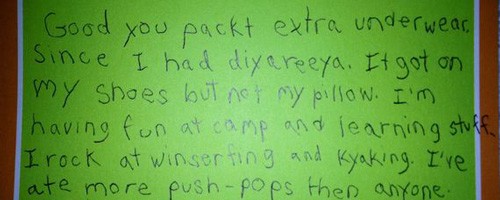 Good you packt extra underwear.
Since I had diyareeya. It got on
my shoes but not my pillow. I'm
having fun at camp and learning stuff.
I rock at winserfing and kyaking. I've
ate more push-pops then anyone.